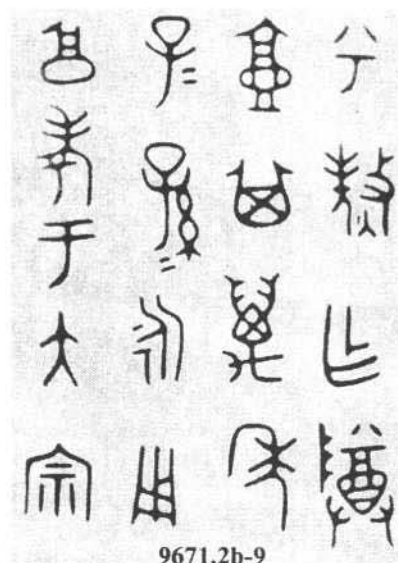 兮熬乍尊
壺其萬年
子=孫=永用
享孝于大宗
9671.2b-9